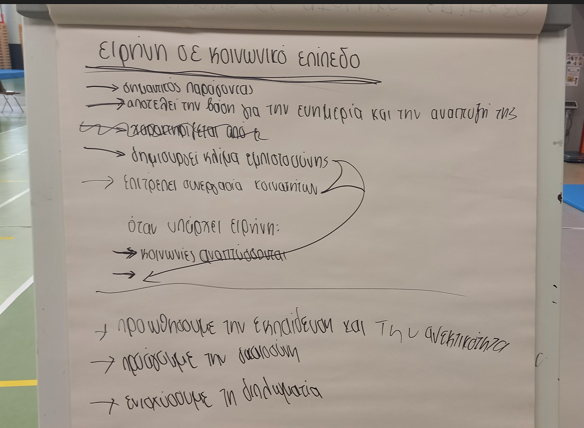 ειρήνη σε κοινωνικό επίπεδο
→ σημαντικός παράγοντας
→ αποτελεί την βάση για την ευημερία και την αναπτυξή της
→ χαρακτηρίζεται από
→ δημιουργεί κλίμα εμπιστοσύνης
→ επιτρέπει συνεργασία κοινοτήτων
όταν υπάρχει ειρήνη:
→ κοινωνίες αναπτύσσονται
→
→ προωθήσουμε την εκπαίδευση και την ανεκτικότητα
→ προάγουμε την δικαιοσύνη
→ ενισχύσουμε τη διπλωματία